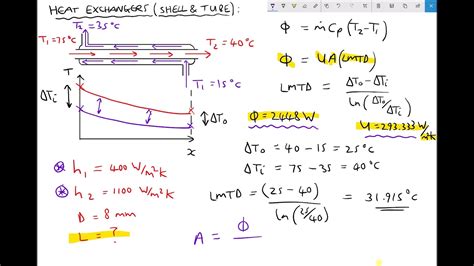 HEAT EXCHANGERS (SHELL & TUBE):
T₂=35°C
T₁=75°C
T₂=40°C
T₁=15°C
T
ΔTi
ΔTo
x
h₁ = 400 W/m²K
h₂ = 1100 W/m²K
D = 8mm
L = ?
Φ = ṁCp(T₂-T₁)
Φ = UA(LMTD)
LMTD = ΔTo-ΔTi / ln(ΔTo/ΔTi)
Φ = 2448W
U = 293.333 W/m²K
ΔTo = 40-15 = 25°C
ΔTi = 75-35 = 40°C
LMTD = (25-40) / ln(25/40) = 31.915°C
A = Φ